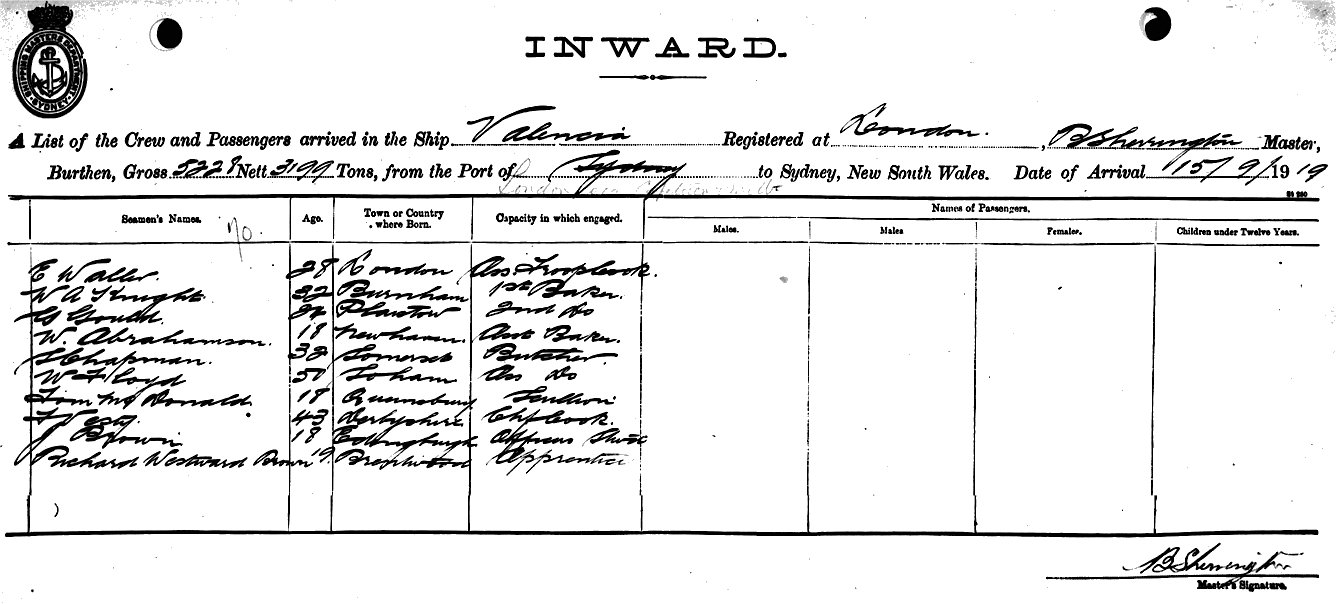 SHIPPING MASTERS DEPARTMENT SYDNEY
INWARD.
A List of the Crew and Passengers arrived in the Ship Valencia Registered at London. , B Sherrington Master,
Burthen, Gross 5228 Nett 3199 Tons, from the Port of Sydney to Sydney, New South Wales. Date of Arrival 15/9/1919
London via
Seamen's Names. Age. Town or Country where Born. Capacity in which engaged. Names of Passengers.
Males. Males Females. Children under Twelve Years.
E Waller. 28 London Ass Troop Cook.
W A Knight. 32 Burnham 1st Baker.
G Gould. 24 Plaistow 2nd Do
W. Abrahamson. 18 Newhaven. Asst Baker.
S Chapman. 32 Somerset Butcher.
W Floyd 51 Soham Ass Do
Tom Mc Donald. 18 Queensbury Scullion
43 Derbyshire Ch Cook.
J Brown 18 Edingburgh Officers Stwd
Richard Westward Brown 19 Brentwood Apprentice
B Sherrington
Master's Signature.